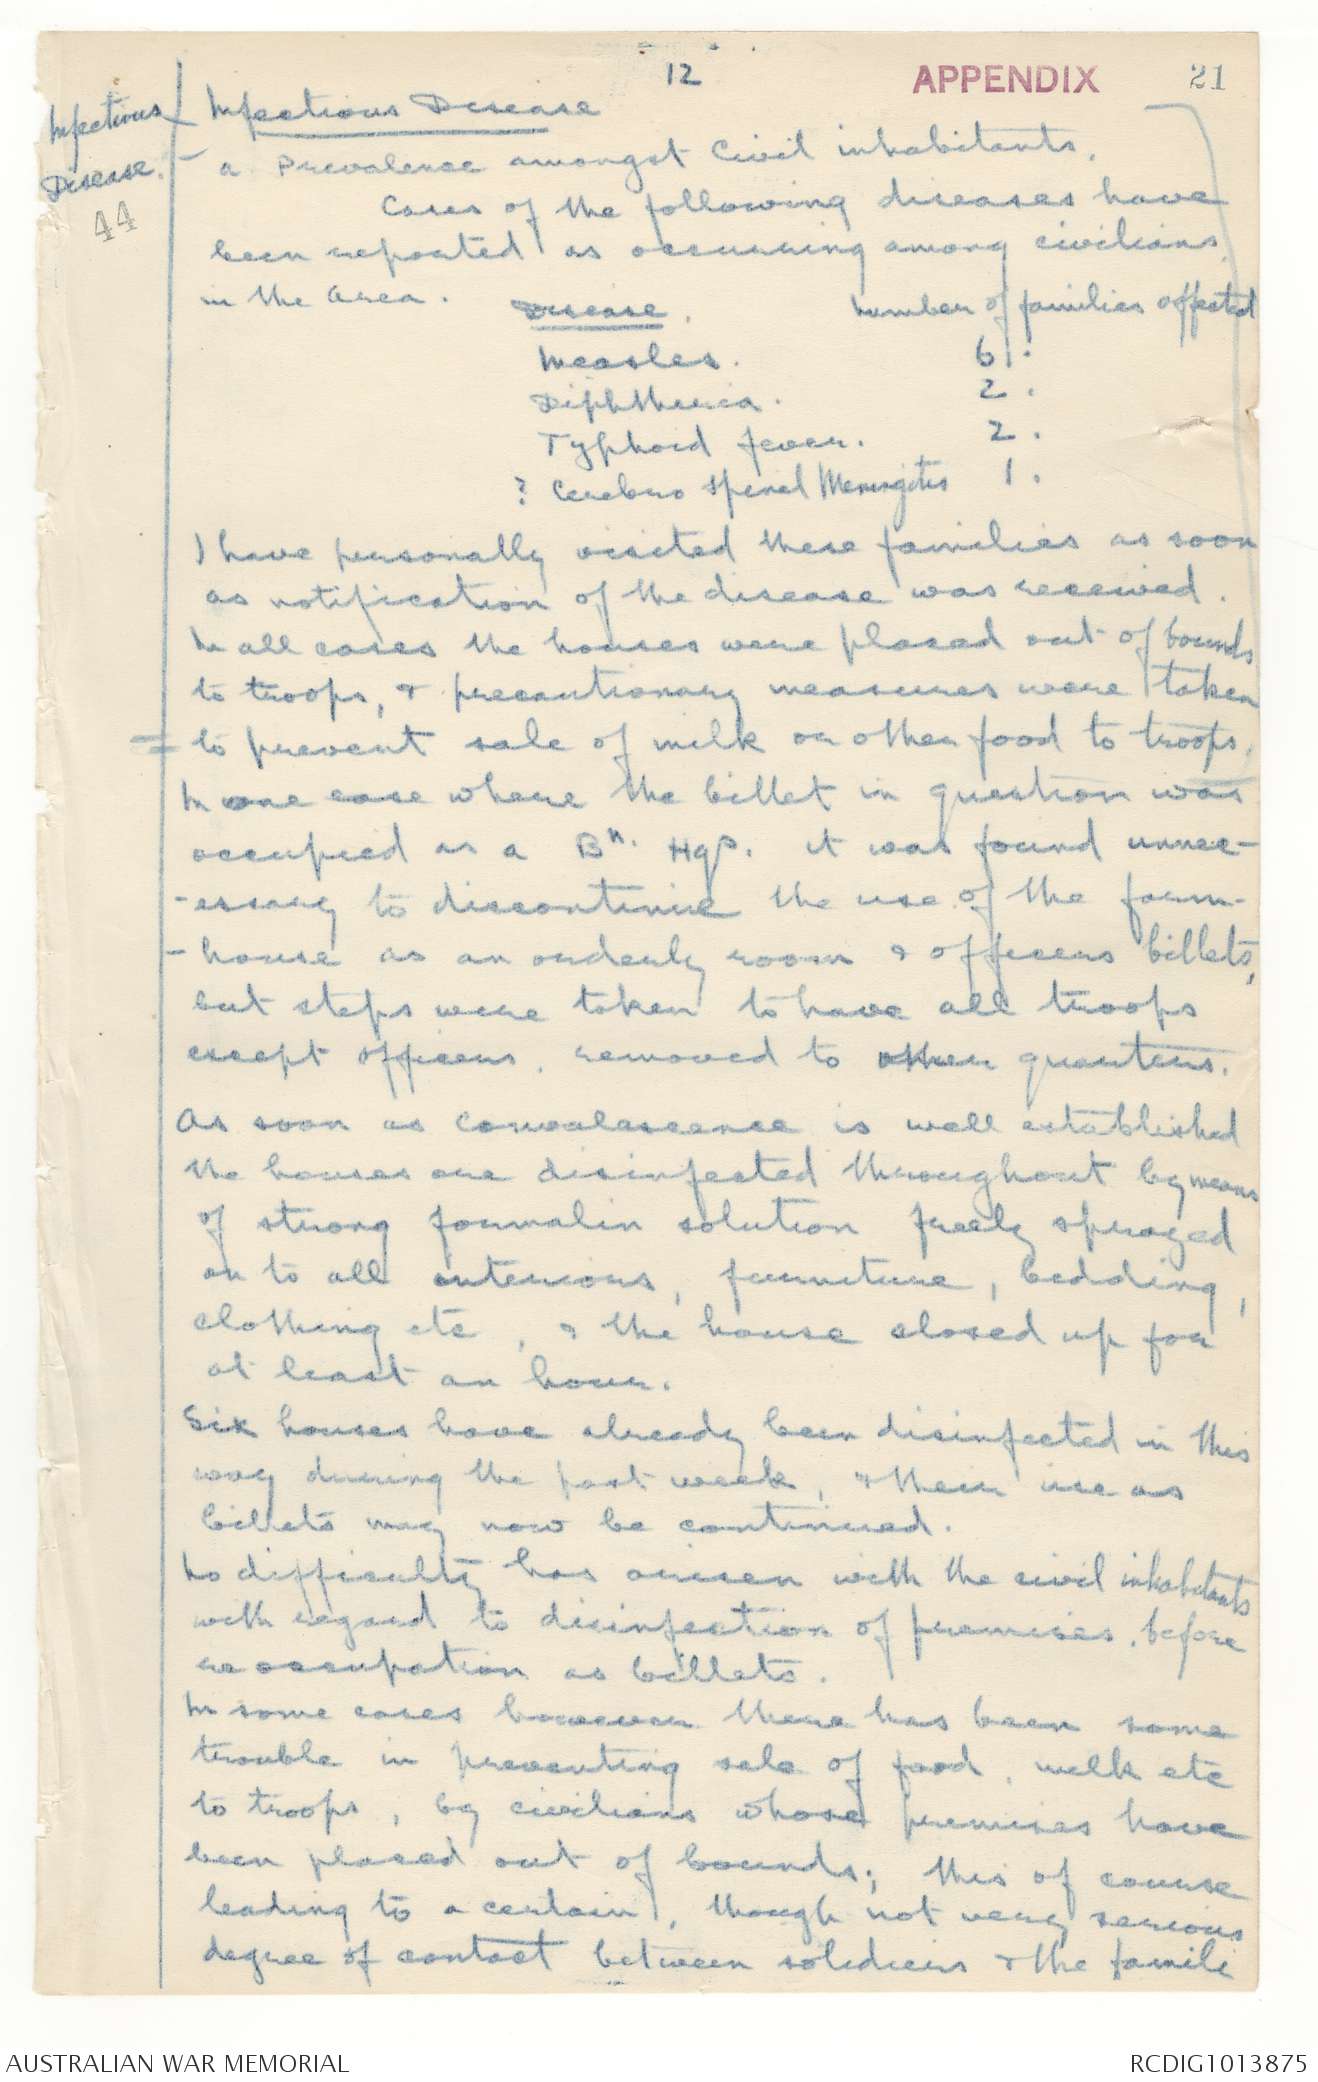 12
APPENDIX
21
Infectious
Disease.
44
Infectious Disease
a Prevalence amongst Civil inhabitants.
Cases of the following diseases have
been reported as occurring among civilians
in the area.
Disease. Number of families affected
Measles. 6.
Diphtheria. 2.
Typhoid fever. 2.
? Cerebro Spinal Meningitis 1.
I have personally visited these families as soon
as notification of the disease was received.
In all cases the houses were placed out of bounds
to troops, & precautionary measures were taken
to prevent sale of milk or other food to troops.
In one case where the billet in question was
occupied as a Bn. Hqs. it was found unnec-
-essary to discontinue the use of the farm-
-house as an orderly room & officers billets,
but steps were taken to have all troops
except officers, removed to other quarters.
As soon as convalescence is well established
the houses are disinfected throughout by means
of strong formalin solution freely sprayed
on to all interiors, furniture, bedding,
clothing etc, & the house closed up for
at least an hour.
Six houses have already been disinfected in this
way during the past week, & their use as
billets may now be continued.
No difficulty has arisen with the civil inhabitants
with regard to disinfection of premises, before
reoccupation as billets.
In some cases however there has been some
trouble in preventing sale of food, milk etc
to troops, by civilians whose premises have
been placed out of bounds; this of course
leading to a certain, though not very serious
degree of contact between soldiers & the famili
AUSTRALIAN WAR MEMORIAL
RCDIG1013875